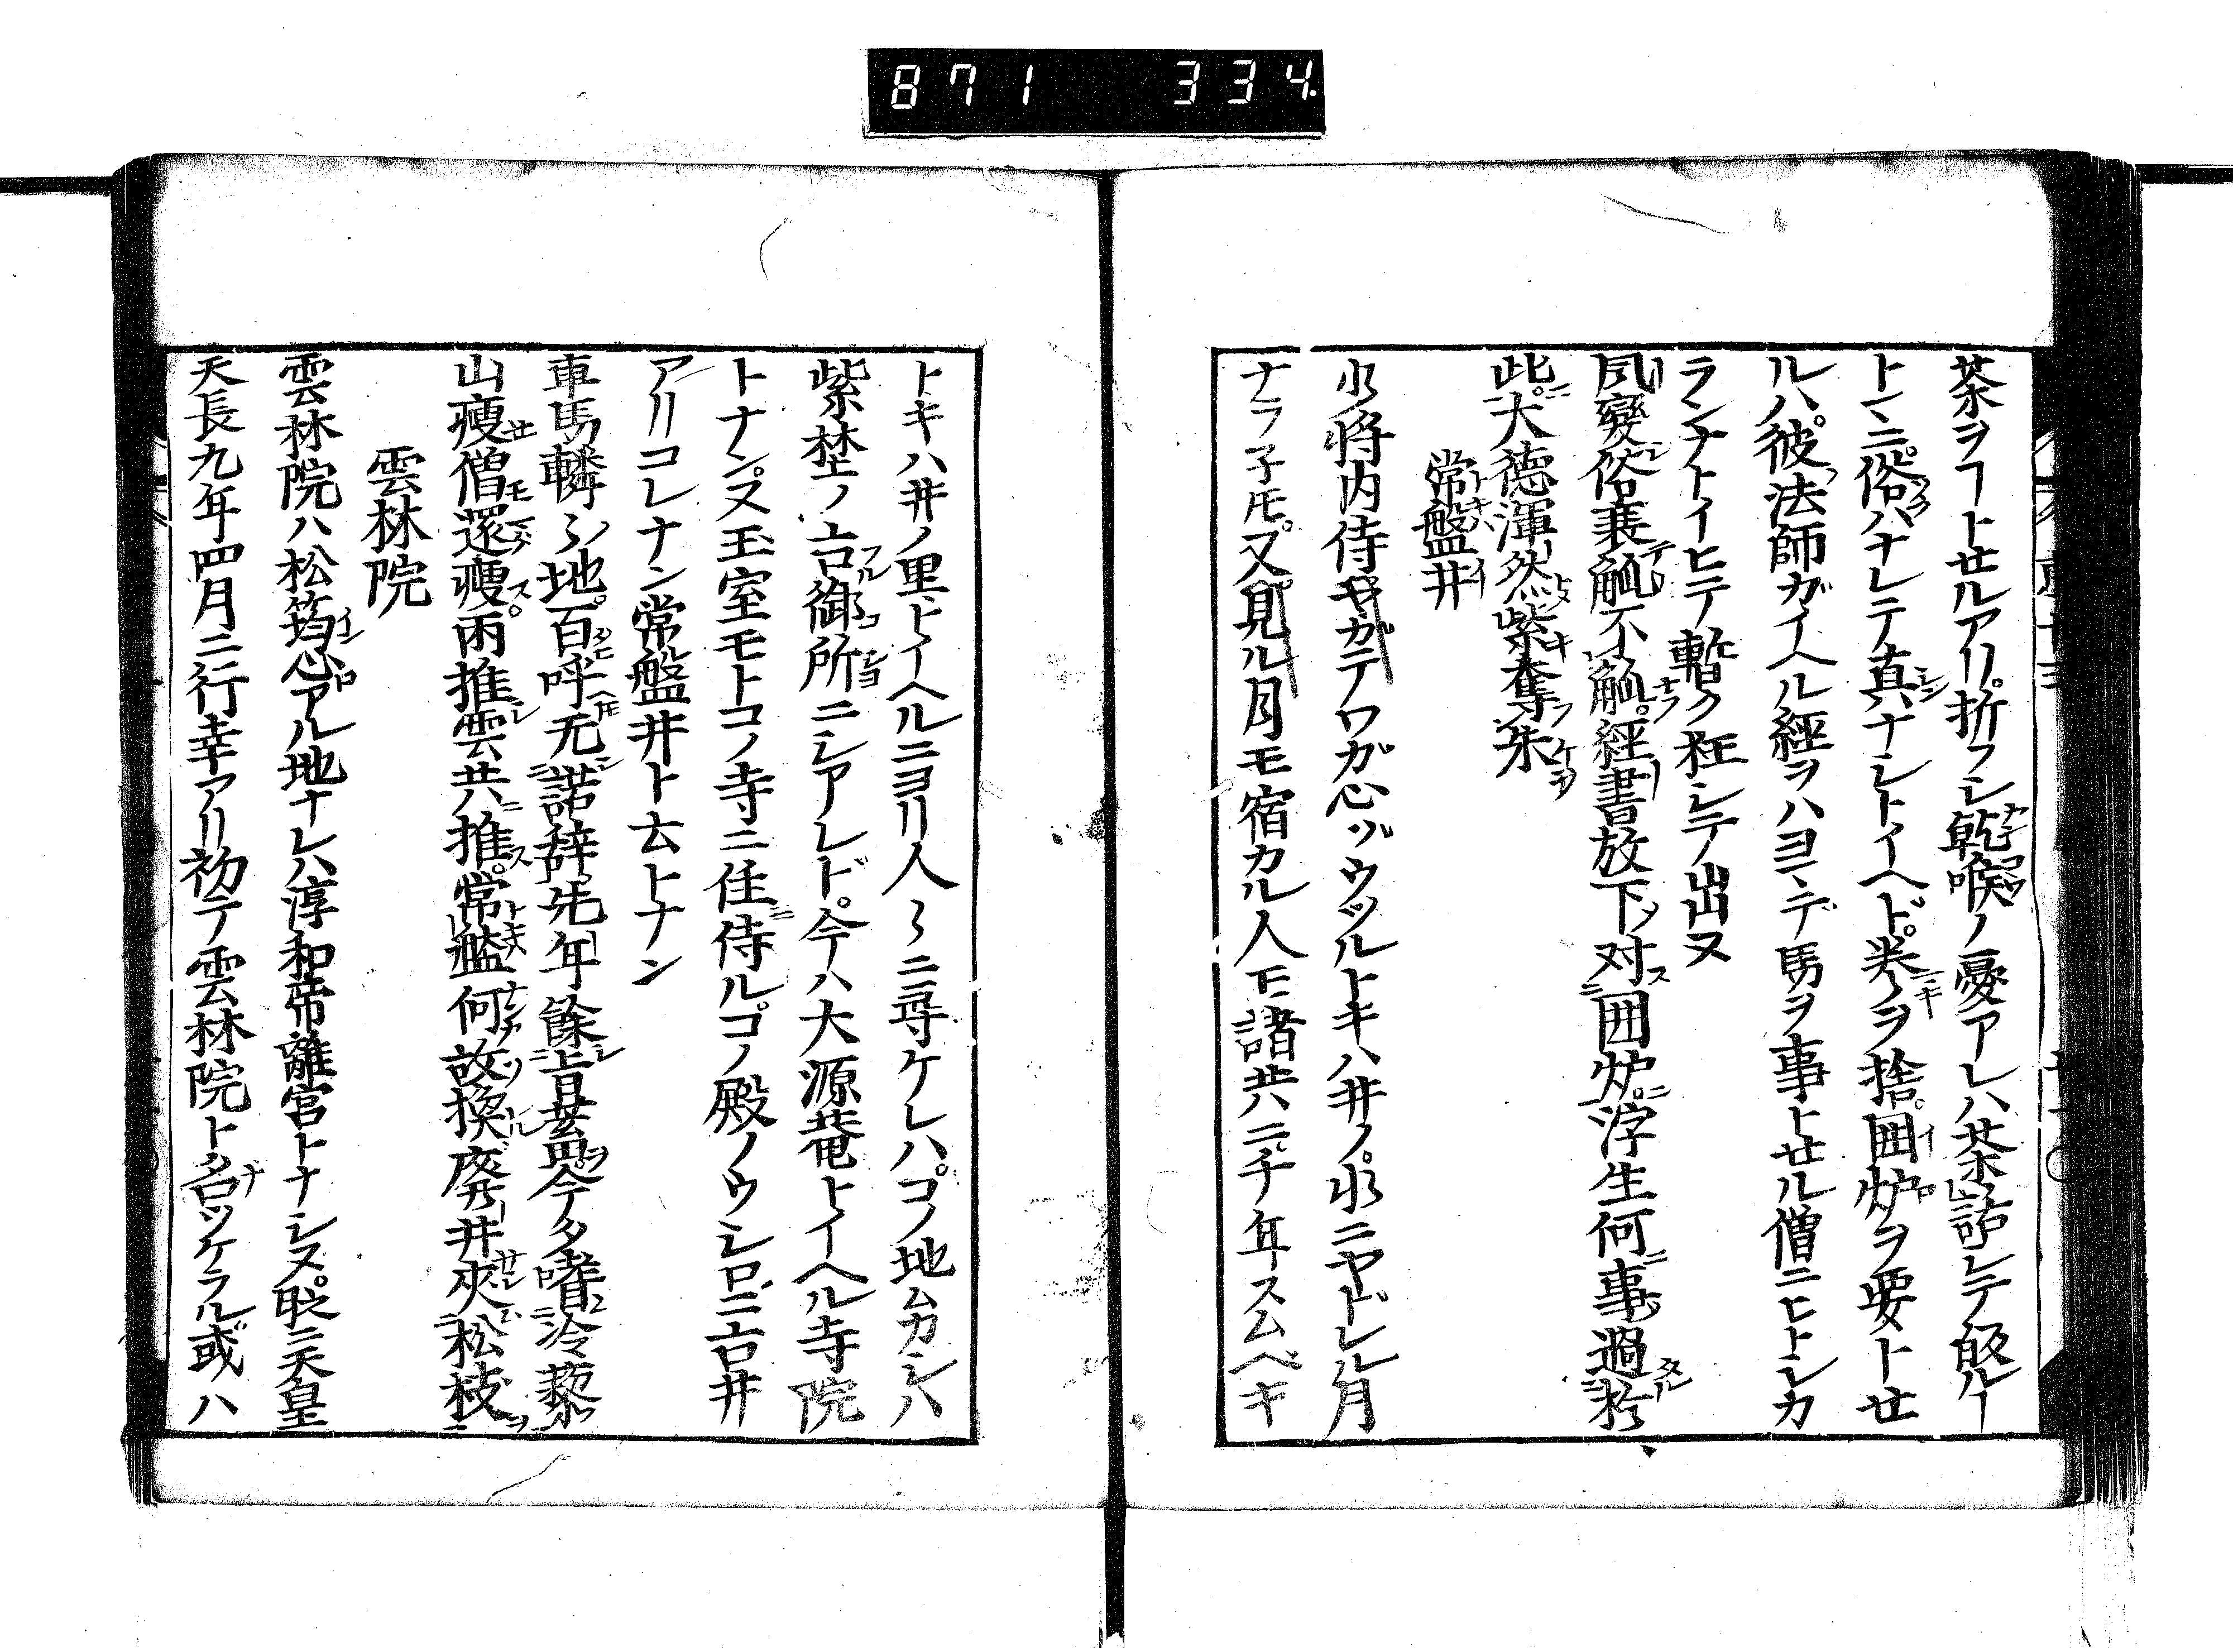 871 334
茶ヲヿトせルアリ折フシ乾喉ノ憂アレハ茶話シテ皈ルヿ
トンニ俗ハナレテ真ナシトイヘド巻ヲ捨囲炉ヲ要トせ
ルハ彼法師ガイヘル經ヲハヨマデ馬ヲ事トせル僧ニヒトシカ
ランナトイヒテ暫ク枉シテノ出ヌ
風変俗衰觚不觚經書放下対囲炉浮生何事過於
此大德渾然紫奪朱
常盤井
少将内侍
ヤガテワガ心ゾウツルトキハ井ノ水ニヤドレル月
ナラ子ドモ又見ル月モ宿カル人モ諸共ニ千年スムベキ
トキハ井ノ里トイヘルニヨリ人々ニ尋ケレハコノ地ムカシハ
紫埜ノ古御所ニシアレド今ハ大源菴トイヘル寺院
トナンヌ玉室モトコノ寺ニ住侍ルコノ殿ノウシロニ古井
アリコレナン常盤井ト云トナン
車馬轔々地百呼无諾辞先年餘皆蓋今夕嗜冷藜
山瘦僧還瘦雨推雲共推常盤何故換廃井夾松枝
雲林院
雲林院ハ松筠心アル地ナレハ淳和帝離宮トナシヌ故ニ天皇
天長九年四月ニ行幸アリ初テ雲林院ト名ツケラル或ハ